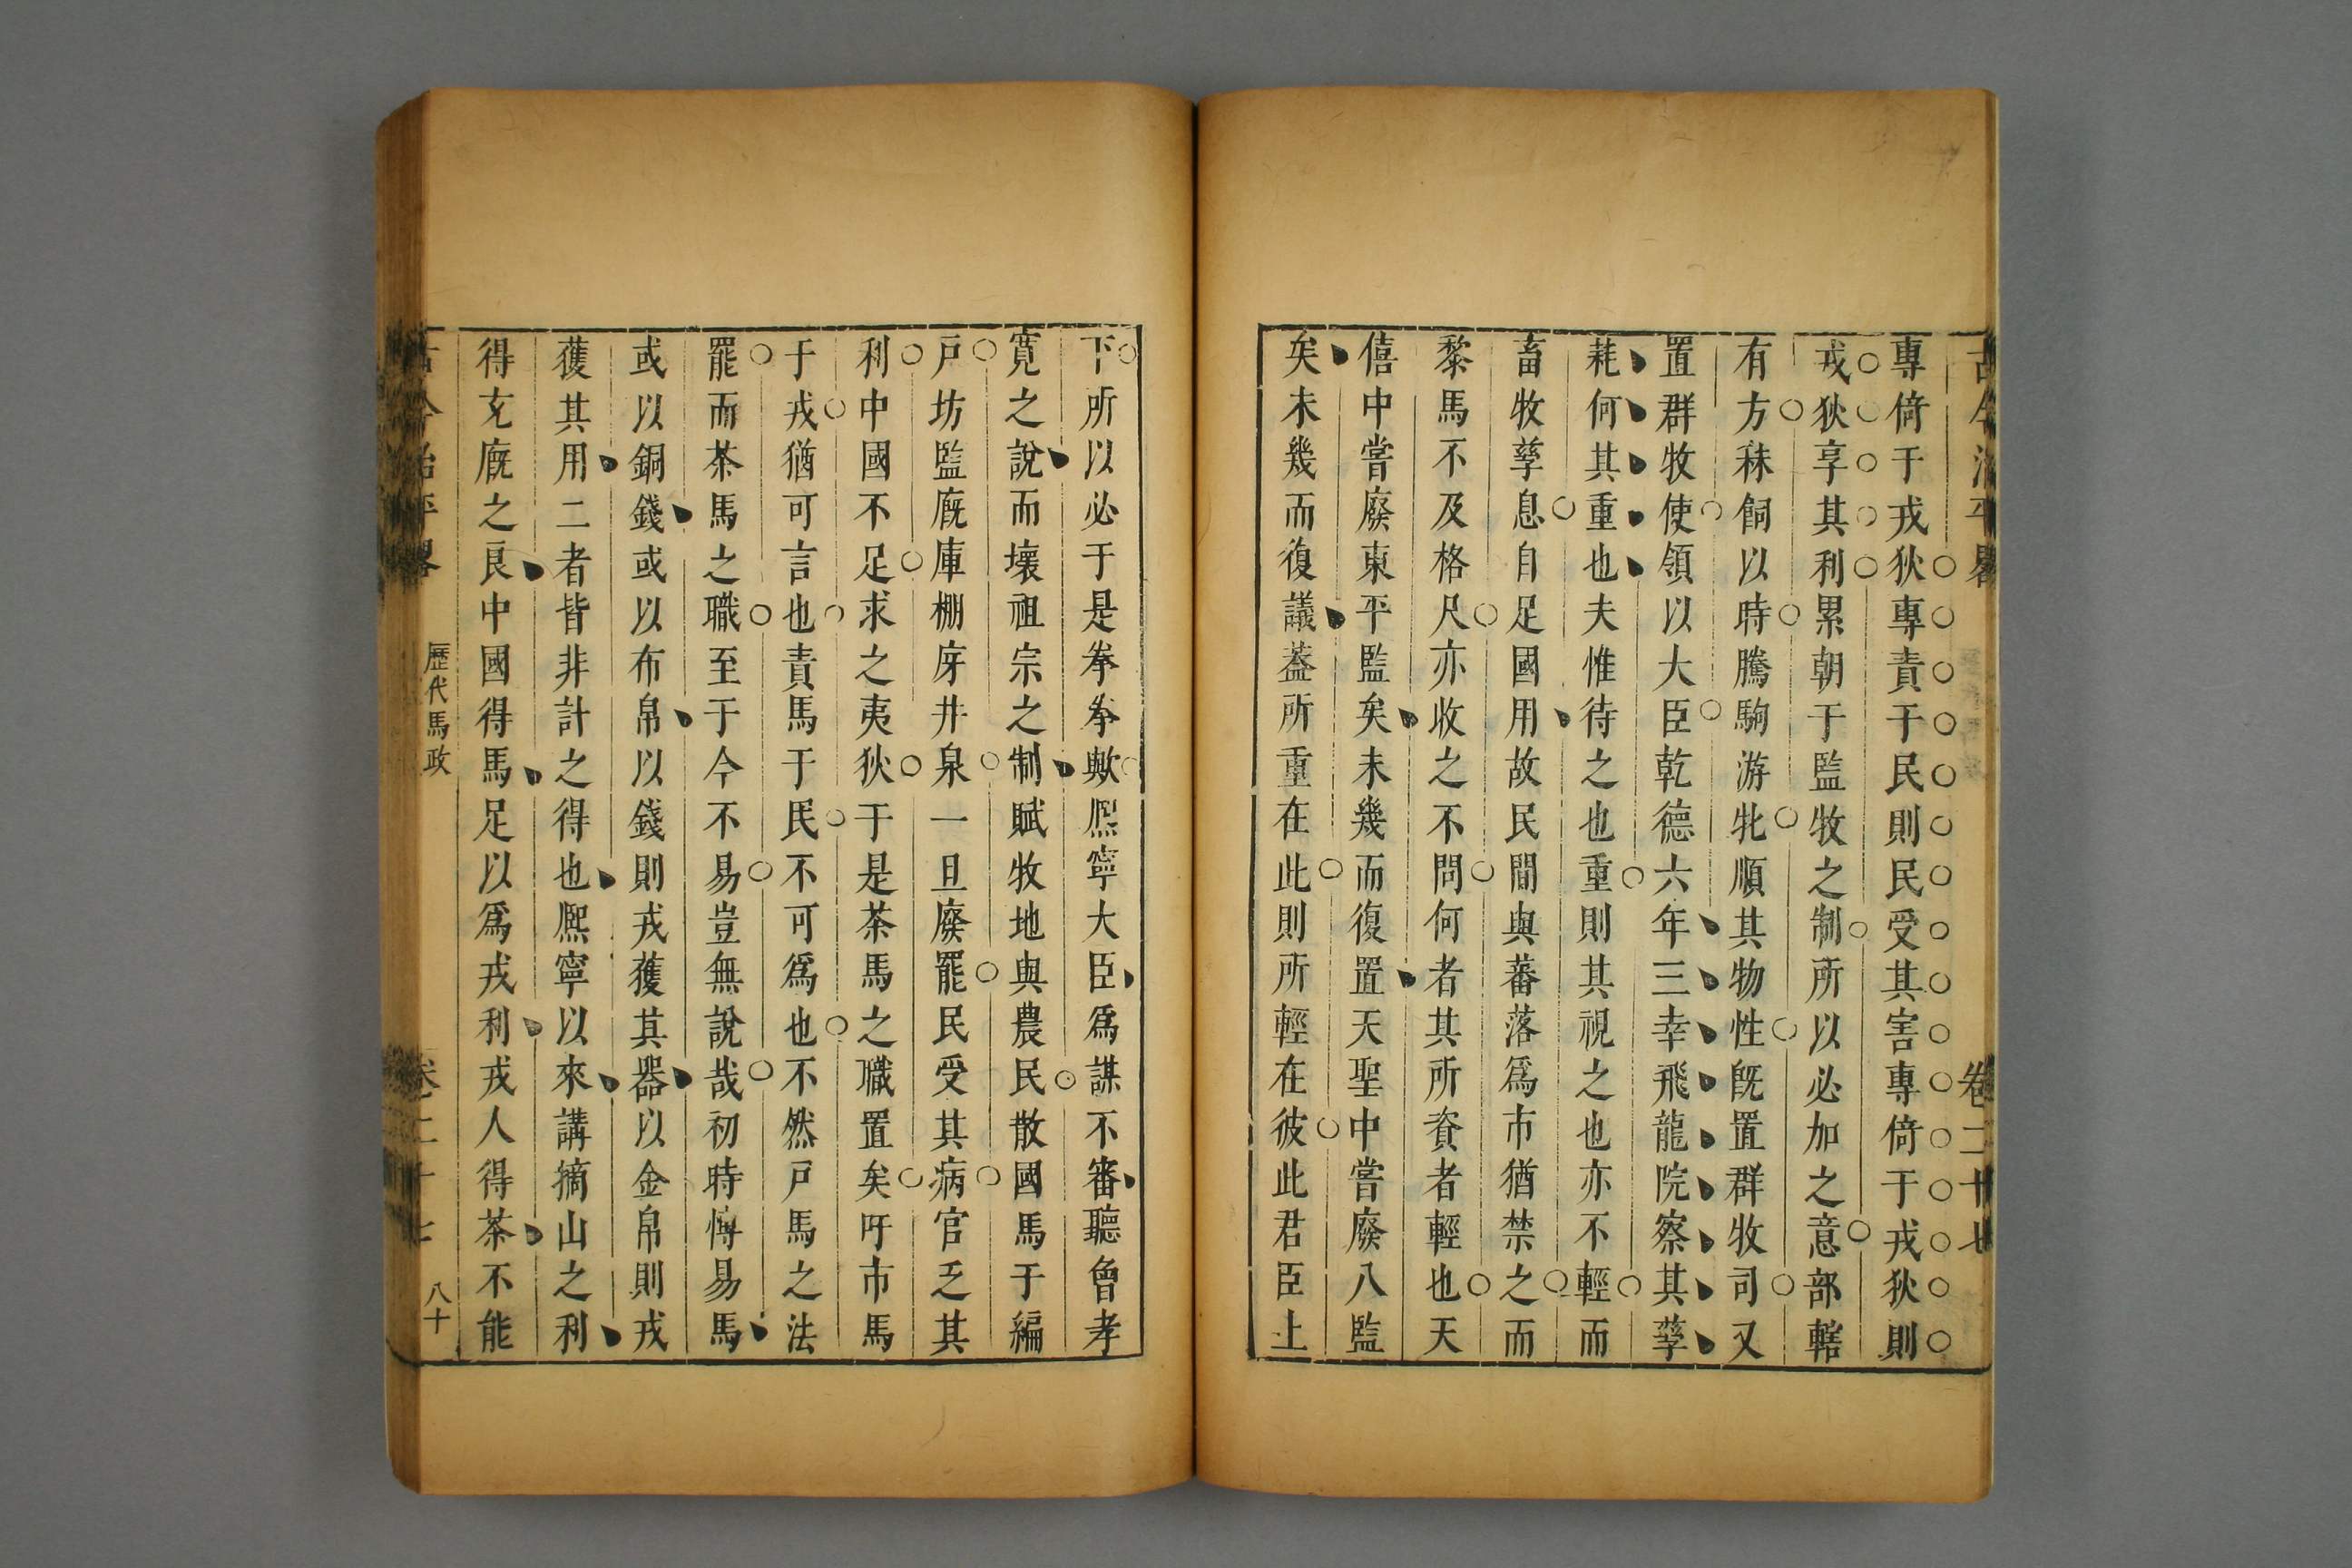 古今治平畧 卷二十七
專倚于戎狄專責于民則民受其害專倚于戎狄則
戎狄享其利累朝于監牧之制所以必加之意部轄
有方秣飼以時騰駒游牝順其物性旣置群牧司又
置群牧使領以大臣乾德六年三幸飛龍院察其孳
耗何其重也夫惟待之也重則其視之也亦不輕而
畜牧孳息自足國用故民間與蕃落爲市猶禁之而
黎馬不及格尺亦收之不問何者其所資者輕也天
僖中嘗廢東平監矣未幾而復置天聖中嘗廢八監
矣未幾而復議葢所重在此則所輕在彼此君臣上
下所以必于是拳拳歟熈寧大臣爲謀不審聽曾孝
寬之說而壞祖宗之制賦牧地與農民散國馬于編
戸坊監廐庫棚庌井泉一旦廢罷民受其病官乏其
利中國不足求之夷狄于是茶馬之職置矣吁市馬
于戎猶可言也責馬于民不可爲也不然戸馬之法
罷而茶馬之職至于今不易豈無說哉初時愽易馬
或以銅錢或以布帛以錢則戎獲其器以金帛則戎
獲其用二者皆非計之得也熈寧以來講摘山之利
得充廐之良中國得馬足以爲戎利戎人得茶不能
古今治平畧 歷代馬政 卷二十七 八十